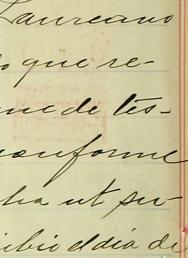 Laureano
o que re-
me de tes-
conforme
ha ut su-
ibió el día de